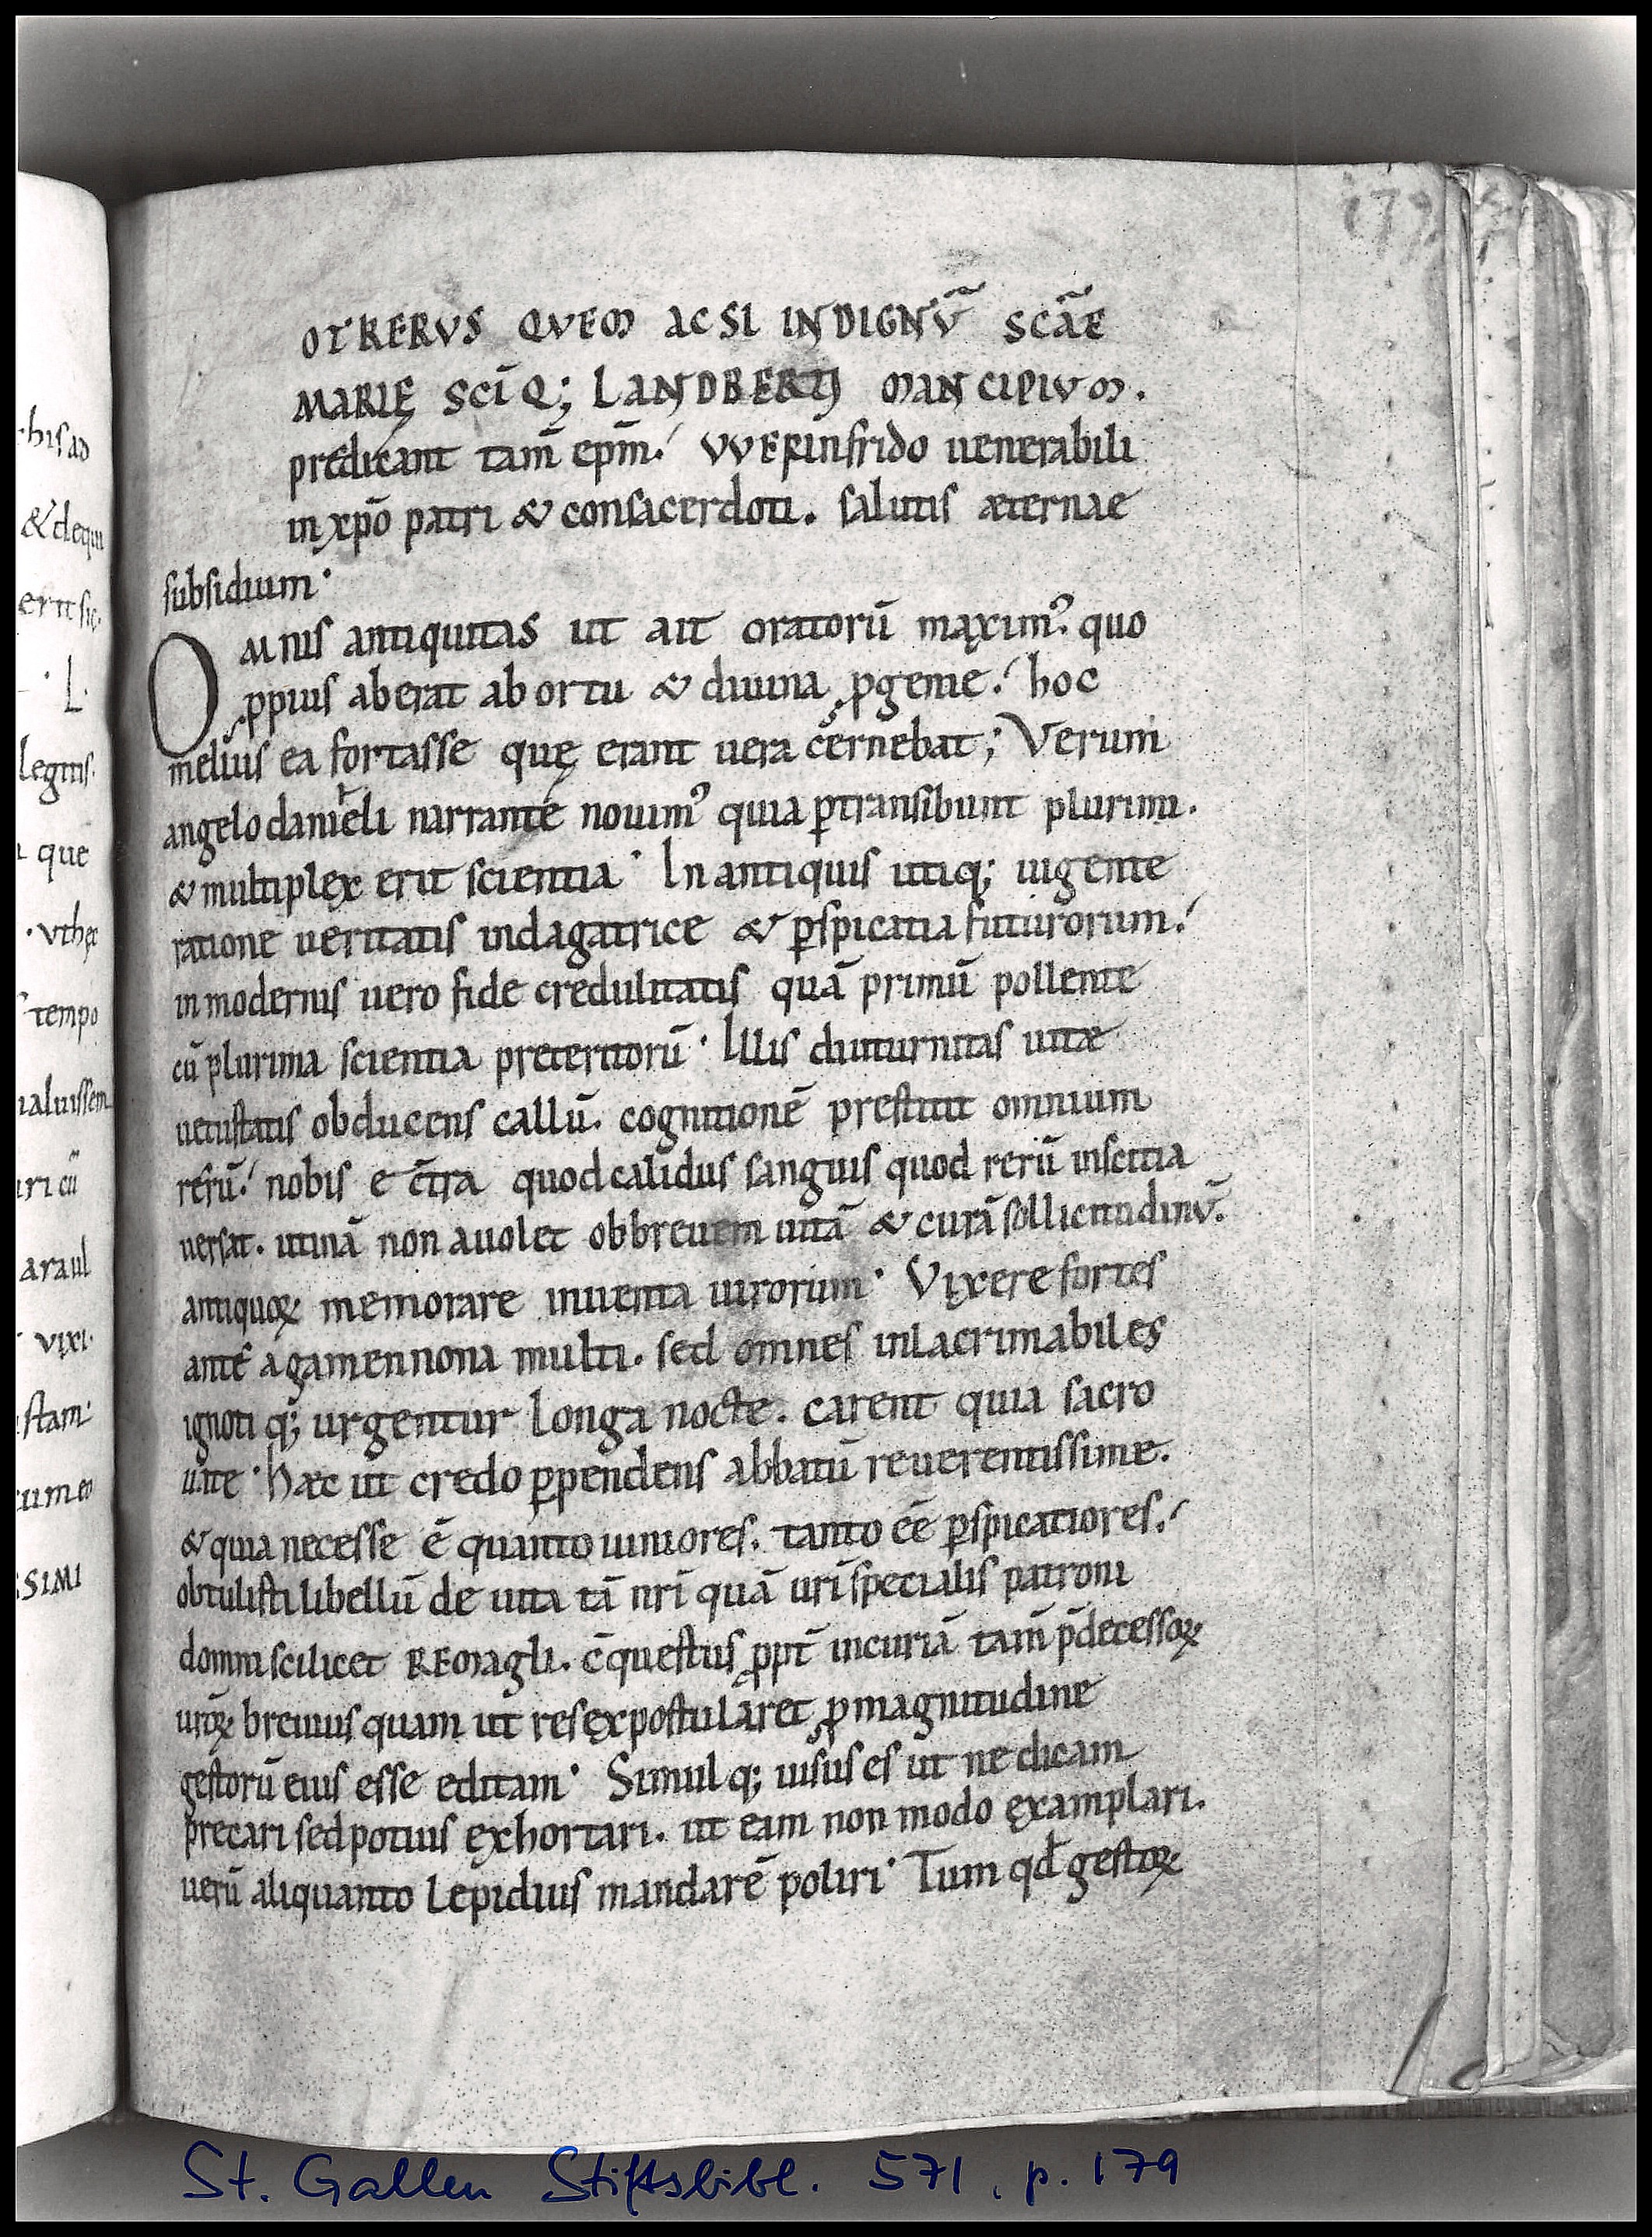 179
OTKERVS QVEM AC SI INDIGNV̄ SCĀE
MARIĘ SCĪQ; LANDBERTI MANCIPIVM.
prędicant tam̄ epm̄. VVERinfrido uenerabili
in xp̄o patri & consacerdoti. salutis æternae
subsidium.
OMNIS antiquitas ut ait oratorū maximꝰ. quo
ꝓpius aberat ab ortu & diuina ꝓgenie. hoc
melius ea fortasse quę erant uera cernebat; Verum
angelo danieli narrante nouimꝰ quia ꝑtransibunt plurimi.
& multiplex erit scientia. In antiquis utiq; uigente
ratione ueritatis indagatrice & ꝑspicatia futurorum.
in modernis uero fide credulitatis quā primū pollente
cū plurima scientia preteritorū. Illis diuturnitas uitæ
uetustatis obducens callū. cognitionē prestitit omnium
rerū. nobis e c̄tra quod calidus sanguis quod rerū inscitia
uersat. utinā non auolet ob breuem uitā & curā sollicitudinū.
antiquoꝝ memorare inuenta uirorum. Vixere fortes
ante agamennona multi. sed omnes inlacrimabiles
ignoti q; urgentur longa nocte. carent quia sacro
uate. Haec ut credo ꝑpendens abbatū reuerentissime.
& quia necesse ē quanto iuniores. tanto eē ꝑspicatiores.
obtulisti libellū de uita tā nr̄i quā ur̄i specialis patroni
domni scilicet REMagli. c̄questus ꝓpt̄ incuriā tam̄ p̄decessoꝝ
ur̄oꝝ breuius quam ut res expostularet ꝓ magnitudine
gestorū eius esse editam. Simul q; uisus es ut ne dicam
precari sed potius exhortari. ut eam non modo examplari.
uerū aliquanto lepidius mandarē poliri. Tum qđ gestoꝝ
his ad
& dequi
erit sic.
L.
legitis.
que
. vthęc
tempo
ualuissem
uri cū
araul
vixi.
stam.
SIMI
St. Gallen Stiftsbibl. 571, p. 179